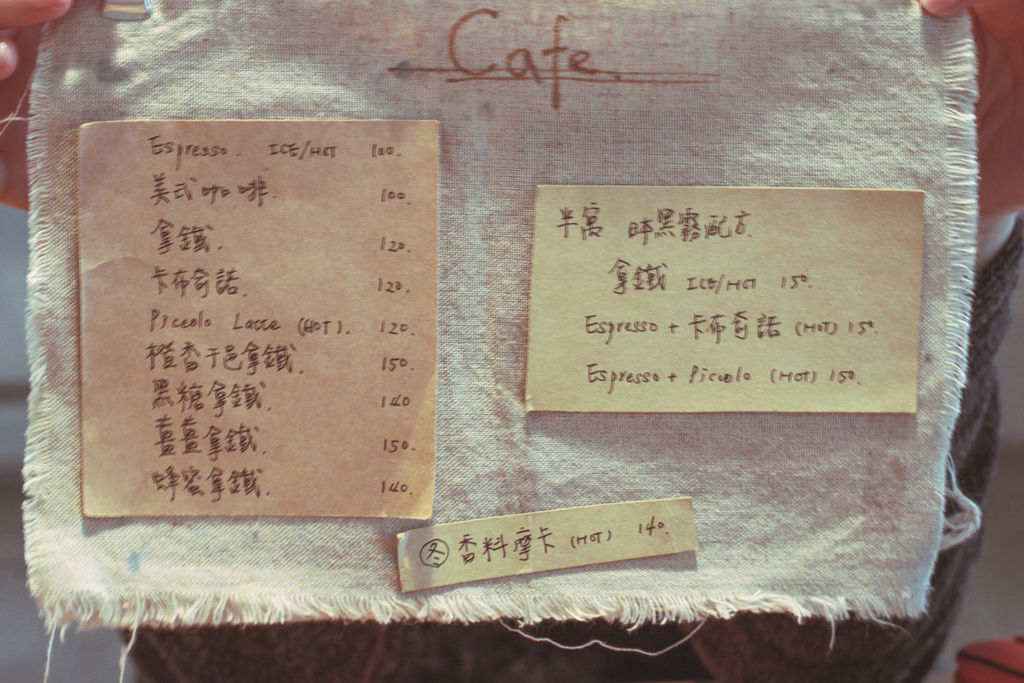 Cafe
Espresso. ICE/HOT 100.
美式咖啡. 100.
拿鐵. 120.
卡布奇諾. 120.
Piccolo Latte (HOT). 120.
橙香干邑拿鐵. 150.
黑糖拿鐵. 140
薑薑拿鐵. 150.
蜂蜜拿鐵. 140.
半窩 黑霧配方.
拿鐵 ICE/HOT 150.
Espresso + 卡布奇諾 (HOT) 150.
Espresso + Piccolo (HOT) 150.
冬 香料摩卡 (HOT) 140.